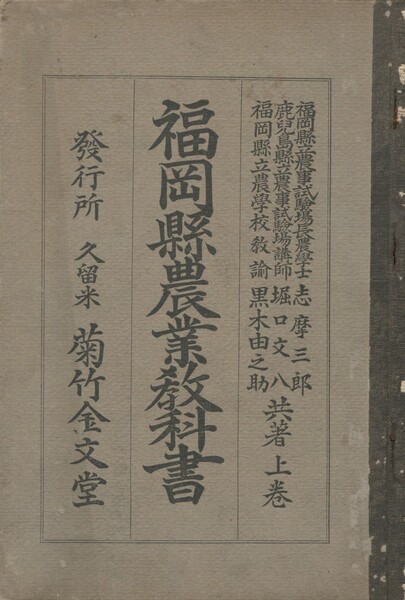 福岡縣立農事試驗場長農學士 志摩三郎
鹿兒島縣立農事試驗場講師 堀口文八
福岡縣立農學校教諭 黒木由之助
共著 上卷
福岡縣農業教科書
發行所 久留米 菊竹金文堂